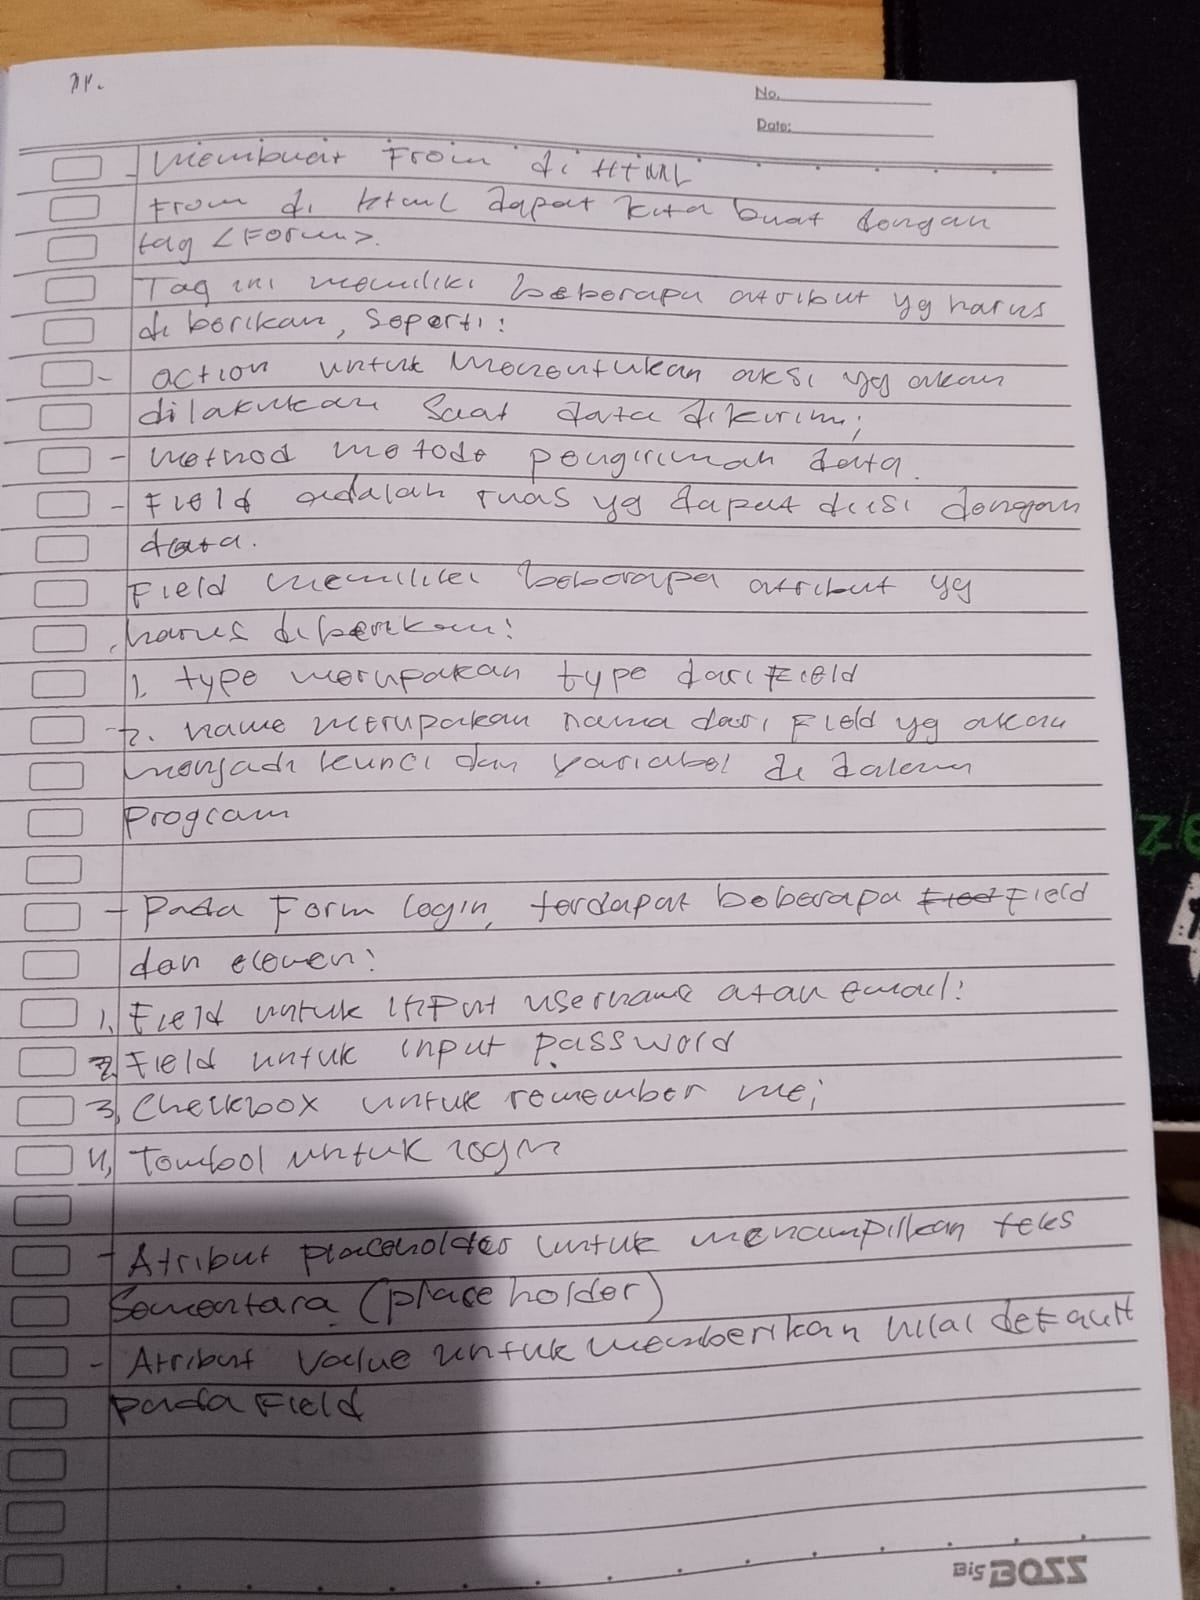 No.
Date:
- Membuat From di HTML
From di html dapat kita buat dengan
tag <Form>.
Tag ini memiliki beberapa atribut yg harus
di berikan, seperti:
- action untuk menentukan aksi yg akan
dilakukan saat data dikirim;
- method metode pengiriman data.
- Field adalah ruas yg dapat diisi dengan
data.
Field memiliki beberapa atribut yg
harus diberikan:
1. type merupakan type dari Field
2. name merupakan nama dari Field yg akan
menjadi kunci dan variabel di dalam
Program
- Pada Form login, terdapat beberapa Field
dan elemen:
1. Field untuk input username atau email:
2. Field untuk input password
3. Checkbox untuk remember me;
4, Tombol untuk login
- Atribut placeholder untuk menampilkan teks
Sementara (place holder)
- Atribut value untuk memberikan nilai default
pada Field
Big BOSS